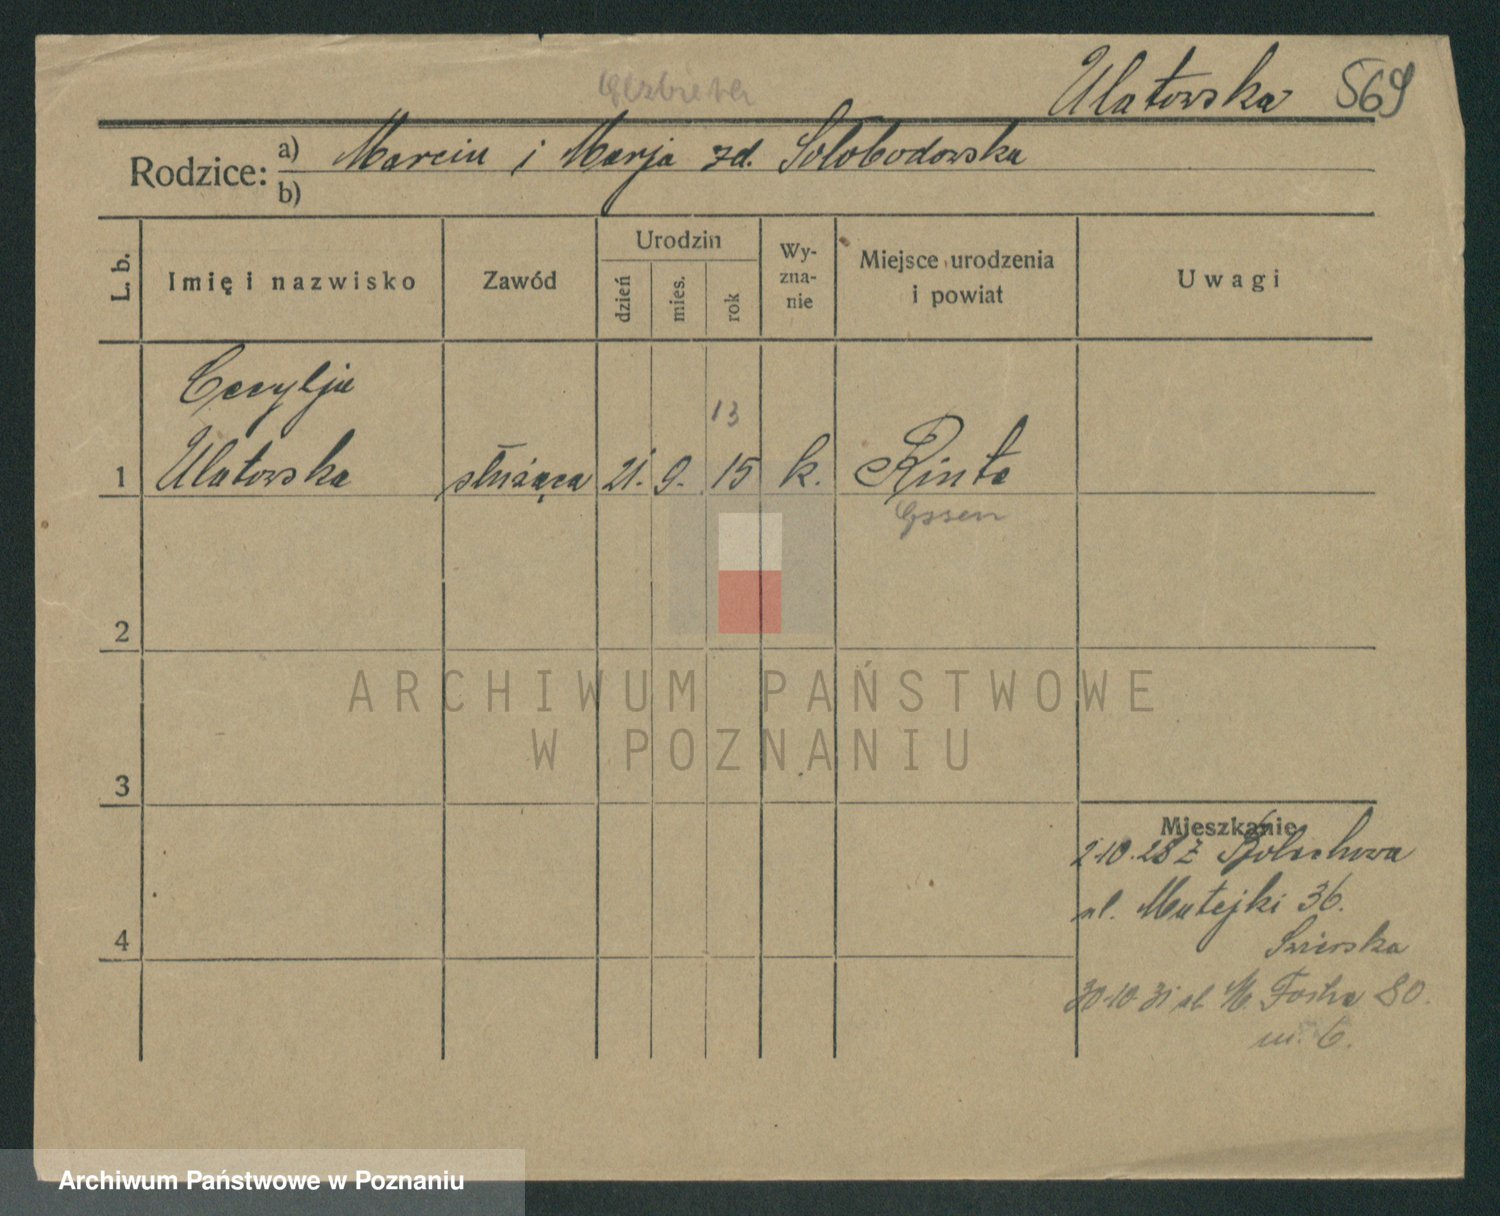 Ulatowska 569
Rodzice: a) Marcin i Marja zd. Sołobodowska
b)
L. b.
Imię i nazwisko
Zawód
Urodzin
dzień
mies.
rok
Wy-
zna-
nie
Miejsce urodzenia
i powiat
Uwagi
Cecylja
13
1 Ulatowska służąca 21. 9. 15 k. Rinte
Essen
2
ARCHIWUM PAŃSTWOWE
W POZNANIU
3
Mieszkanie
2.10.28 z Bolechowa
ul. Matejki 36.
4
30.10.31 ul. M. Focha 80.
m. 6.
Archiwum Państwowe w Poznaniu